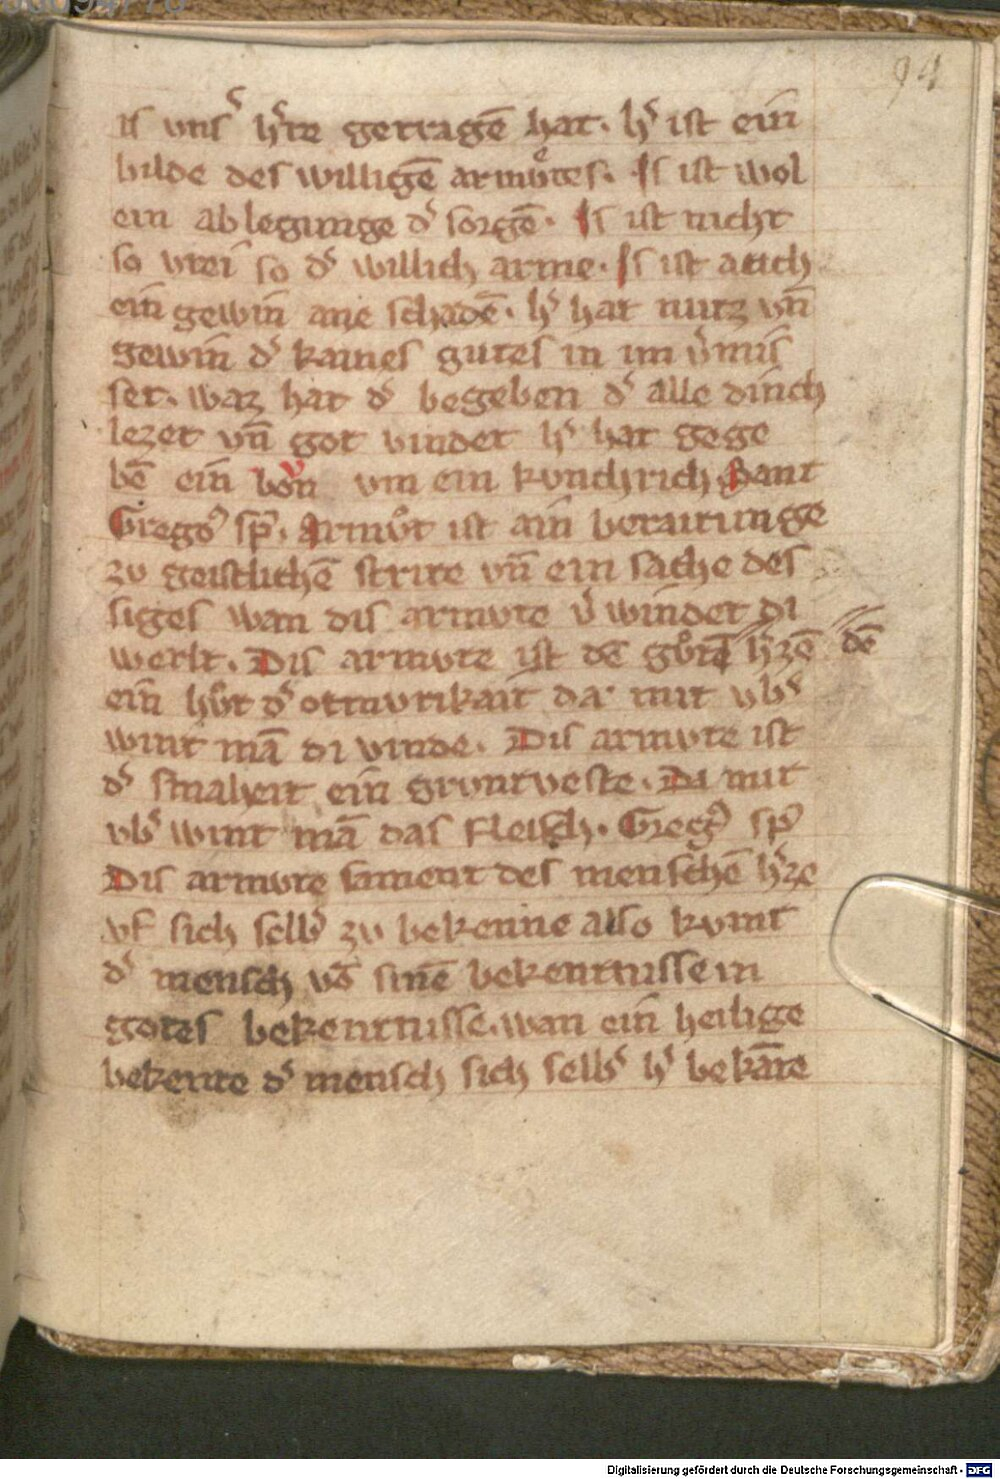 94
is vnsˀ hˀre getragē hat. hˀ ist ein
bilde des willigē armuͦtes. Is ist wol
ein ablegunge dˀ sorgē. Is ist nicht
so vrei so dˀ willich arme. Is ist auch
ein gewin ane schadē. hˀ hat nutz vn̄
gewin dˀ kaines gutes in im vˀmis
set. waz hat dˀ begeben dˀ alle dinch
lezet vn̄ got vindet hˀ hat gege
bē ein bon vm ein kvnchrich. Sant
Gregoˀ sp̄. Armuͦt ist ain beraitunge
zv geistlichē strite vn̄ ein sache des
siges wan dis armvte vˀwindet di
werlt. Dis armvte ist dē guͦtē hˀzē dē
ein huͦt dˀ otmvtikait da mit vbˀ
wint mā di vinde. Dis armvte ist
dˀ smaheit ein grvntveste. Da mit
vbˀwint mā das fleisch. Gregˀ sp̄
Dis armvte sament des menschē hˀze
vf sich selbˀ zv bekenne also kvmt
dˀ mensch vō sinē bekentnisse in
gotes bekentnisse. wan ein heilige
bekente dˀ mensch sich selbˀ hˀ bekāte
Digitalisierung gefördert durch die Deutsche Forschungsgemeinschaft - DFG